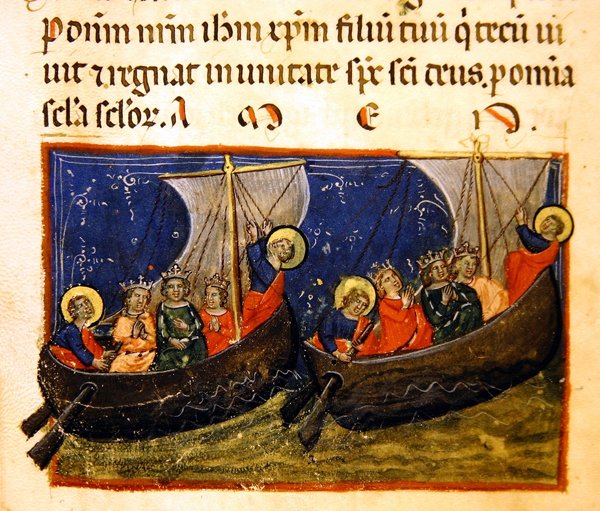 P dnm nrm ihm xpm filiu tuu q̇ tecu ui
uit ⁊ regnat in unitate sps sci deus. p omnia
scl'a scl'oꝝ. A M E N.